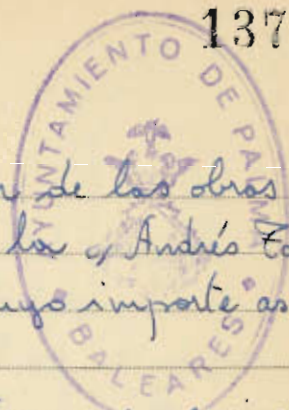 137
AYUNTAMIENTO DE PALMA
BALEARES
n de las obras
la c/ Andrés To
uyo importe as